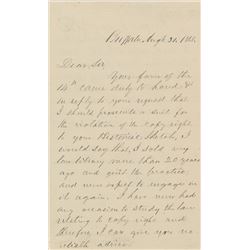 Buffalo, Aug 31, 188
Dear Sir
Your favor of the
14th came duly to hand &
in reply to your request that
I should prosecute a suit for
the violation of the copy right
to your Historical Sketch, I
would say that, I sold my
law library more than 20 years
ago and quit the practice,
and never expect to engage in
it again. I have never had
any occasion to study the law
relating to copy right and
therefore I can give you no
reliable advice.